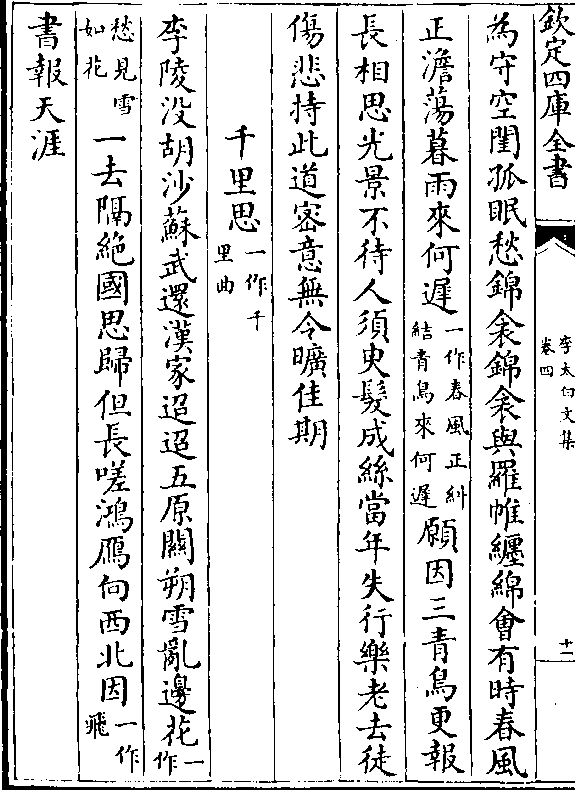 欽定四庫全書
李太白文集
卷四
十二
為守空閨孤眠愁錦衾錦衾與羅帷纏綿會有時春風
正澹蕩暮雨來何遲一作春風正糾結青鳥來何遲願因三青鳥更報
長相思光景不待人須臾髮成絲當年失行樂老去徒
傷悲持此道密意無令曠佳期
千里思一作千里曲
李陵没胡沙蘇武還漢家迢迢五原關朔雪亂邊花一作
愁見雪如花一去隔絶國思歸但長嗟鴻鴈向西北因一作飛
書報天涯